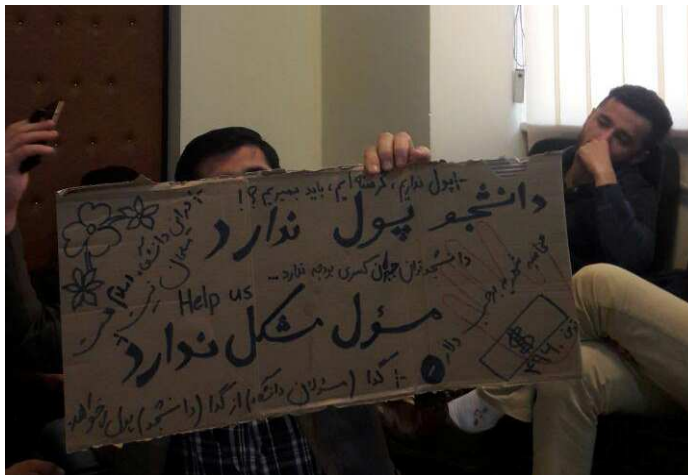 #پول نداریم، گرسنه ایم، باید بمیریم؟!
دانشجو پول ندارد
دانشجو برای جبران کسری بودجه ندارد...
Help us
مسؤل مشکل ندارد
# گدا (مسئولان دانشگاه) از گدا (دانشجو) پول میخواهد
محاسبه شهریه برحسب دلار